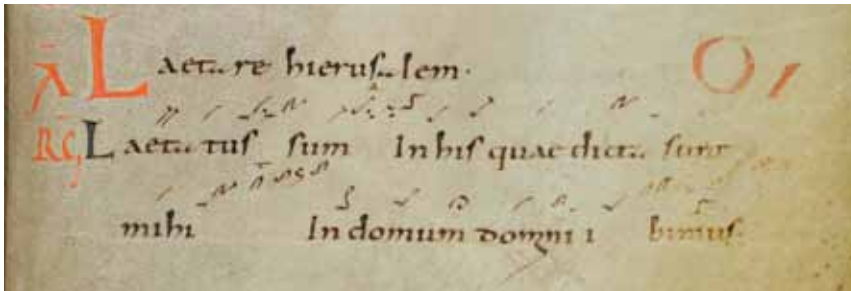 Ā Laetare hierusalem.
RG Laetatus sum In his quae dicta sunt
mihi In domum domini ibimus.